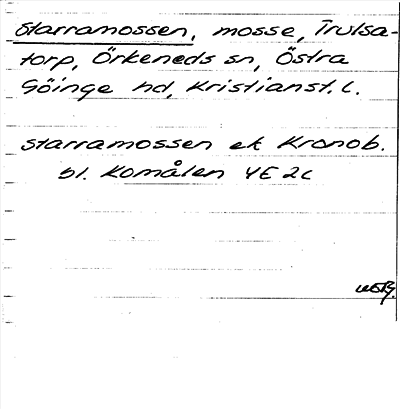 Starramossen, mosse, Trulsa-
torp, Örkeneds sn, Östra
Göinge hd, Kristianst. l.
Starramossen ek Kronob.
bl. Komålen 4E 2c